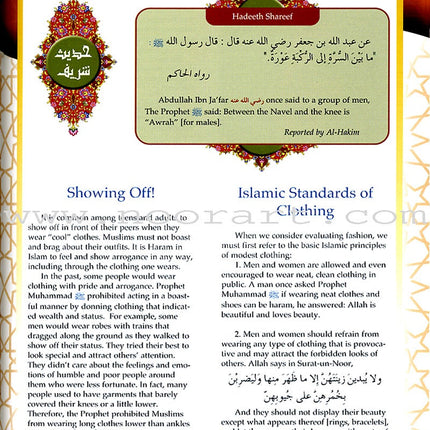 حديث
شريف
Hadeeth Shareef
عن عبد الله بن جعفر رضي الله عنه قال : قال رسول الله ﷺ :
"ما بَيْنَ السُّرَّةِ إلى الرُّكْبَةِ عَوْرَةٌ."
رواه الحاكم
Abdullah Ibn Ja'far رضي الله عنه once said to a group of men,
The Prophet ﷺ said: Between the Navel and the knee is
"Awrah" [for males].
Reported by Al-Hakim
Showing Off!
It is common among teens and adults to
show off in front of their peers when they
wear "cool" clothes. Muslims must not boast
and brag about their outfits. It is Haram in
Islam to feel and show arrogance in any way,
including through the clothing one wears.
In the past, some people would wear
clothing with pride and arrogance. Prophet
Muhammad ﷺ prohibited acting in a boast-
ful manner by donning clothing that indicat-
ed wealth and status. For example, some
men would wear robes with trains that
dragged along the ground as they walked to
show off their status. They tried their best to
look special and attract others' attention.
They didn't care about the feelings and emo-
tions of humble and poor people around
them who were less fortunate. In fact, many
people used to have garments that barely
covered their knees or a little lower.
Therefore, the Prophet prohibited Muslims
from wearing long clothes lower than ankles
Islamic Standards of
Clothing
When we consider evaluating fashion, we
must first refer to the basic Islamic principles
of modest clothing:
1. Men and women are allowed and even
encouraged to wear neat, clean clothing in
public. A man once asked Prophet
Muhammad ﷺ if wearing neat clothes and
shoes can be haram, he answered: Allah is
beautiful and loves beauty.
2. Men and women should refrain from
wearing any type of clothing that is provoca-
tive and may attract the forbidden looks of
others. Allah says in Surat-un-Noor,
ولا يُبدين زينَتَهُنَّ إلا ما ظَهَرَ مِنها وليَضرِبْنَ
بِخُمُرِهِنَّ على جُيوبِهِنَّ
And they should not display their beauty
except what appears thereof [rings, bracelets],